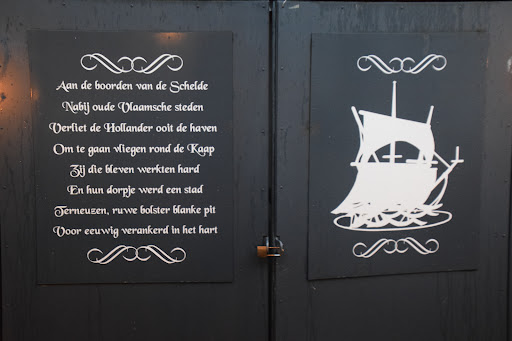 Aan de boorden van de Schelde
Nabij oude Vlaamsche steden
Verliet de Hollander ooit de haven
Om te gaan vliegen rond de Kaap
Zij die bleven werkten hard
En hun dorpje werd een stad
Terneuzen, ruwe bolster blanke pit
Voor eeuwig verankerd in het hart